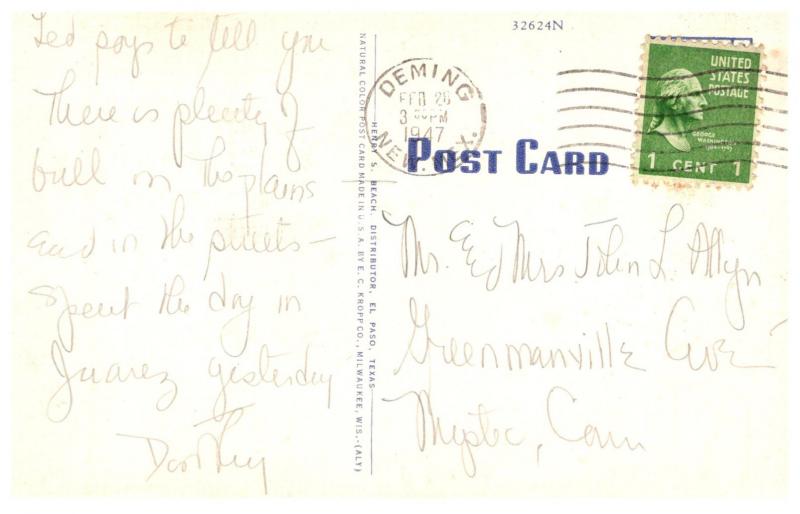 Ted says to tell you
There is plenty of
bull in the plains
and in the streets —
Spent the day in
Juarez yesterday
Dorothy
NATURAL COLOR POST CARD MADE IN U.S.A. BY E. C. KROPP CO., MILWAUKEE, WIS.-(ALY)
HENRY S. BEACH, DISTRIBUTOR, EL PASO, TEXAS
32624N
DEMING
FEB 26
3 PM
1947
NEW. MEX.
UNITED
STATES
POSTAGE
GEORGE
WASHINGTON
1 CENT 1
POST CARD
Mr. and Mrs John L. Allyn
Greenmanville Ave
Mystic, Conn